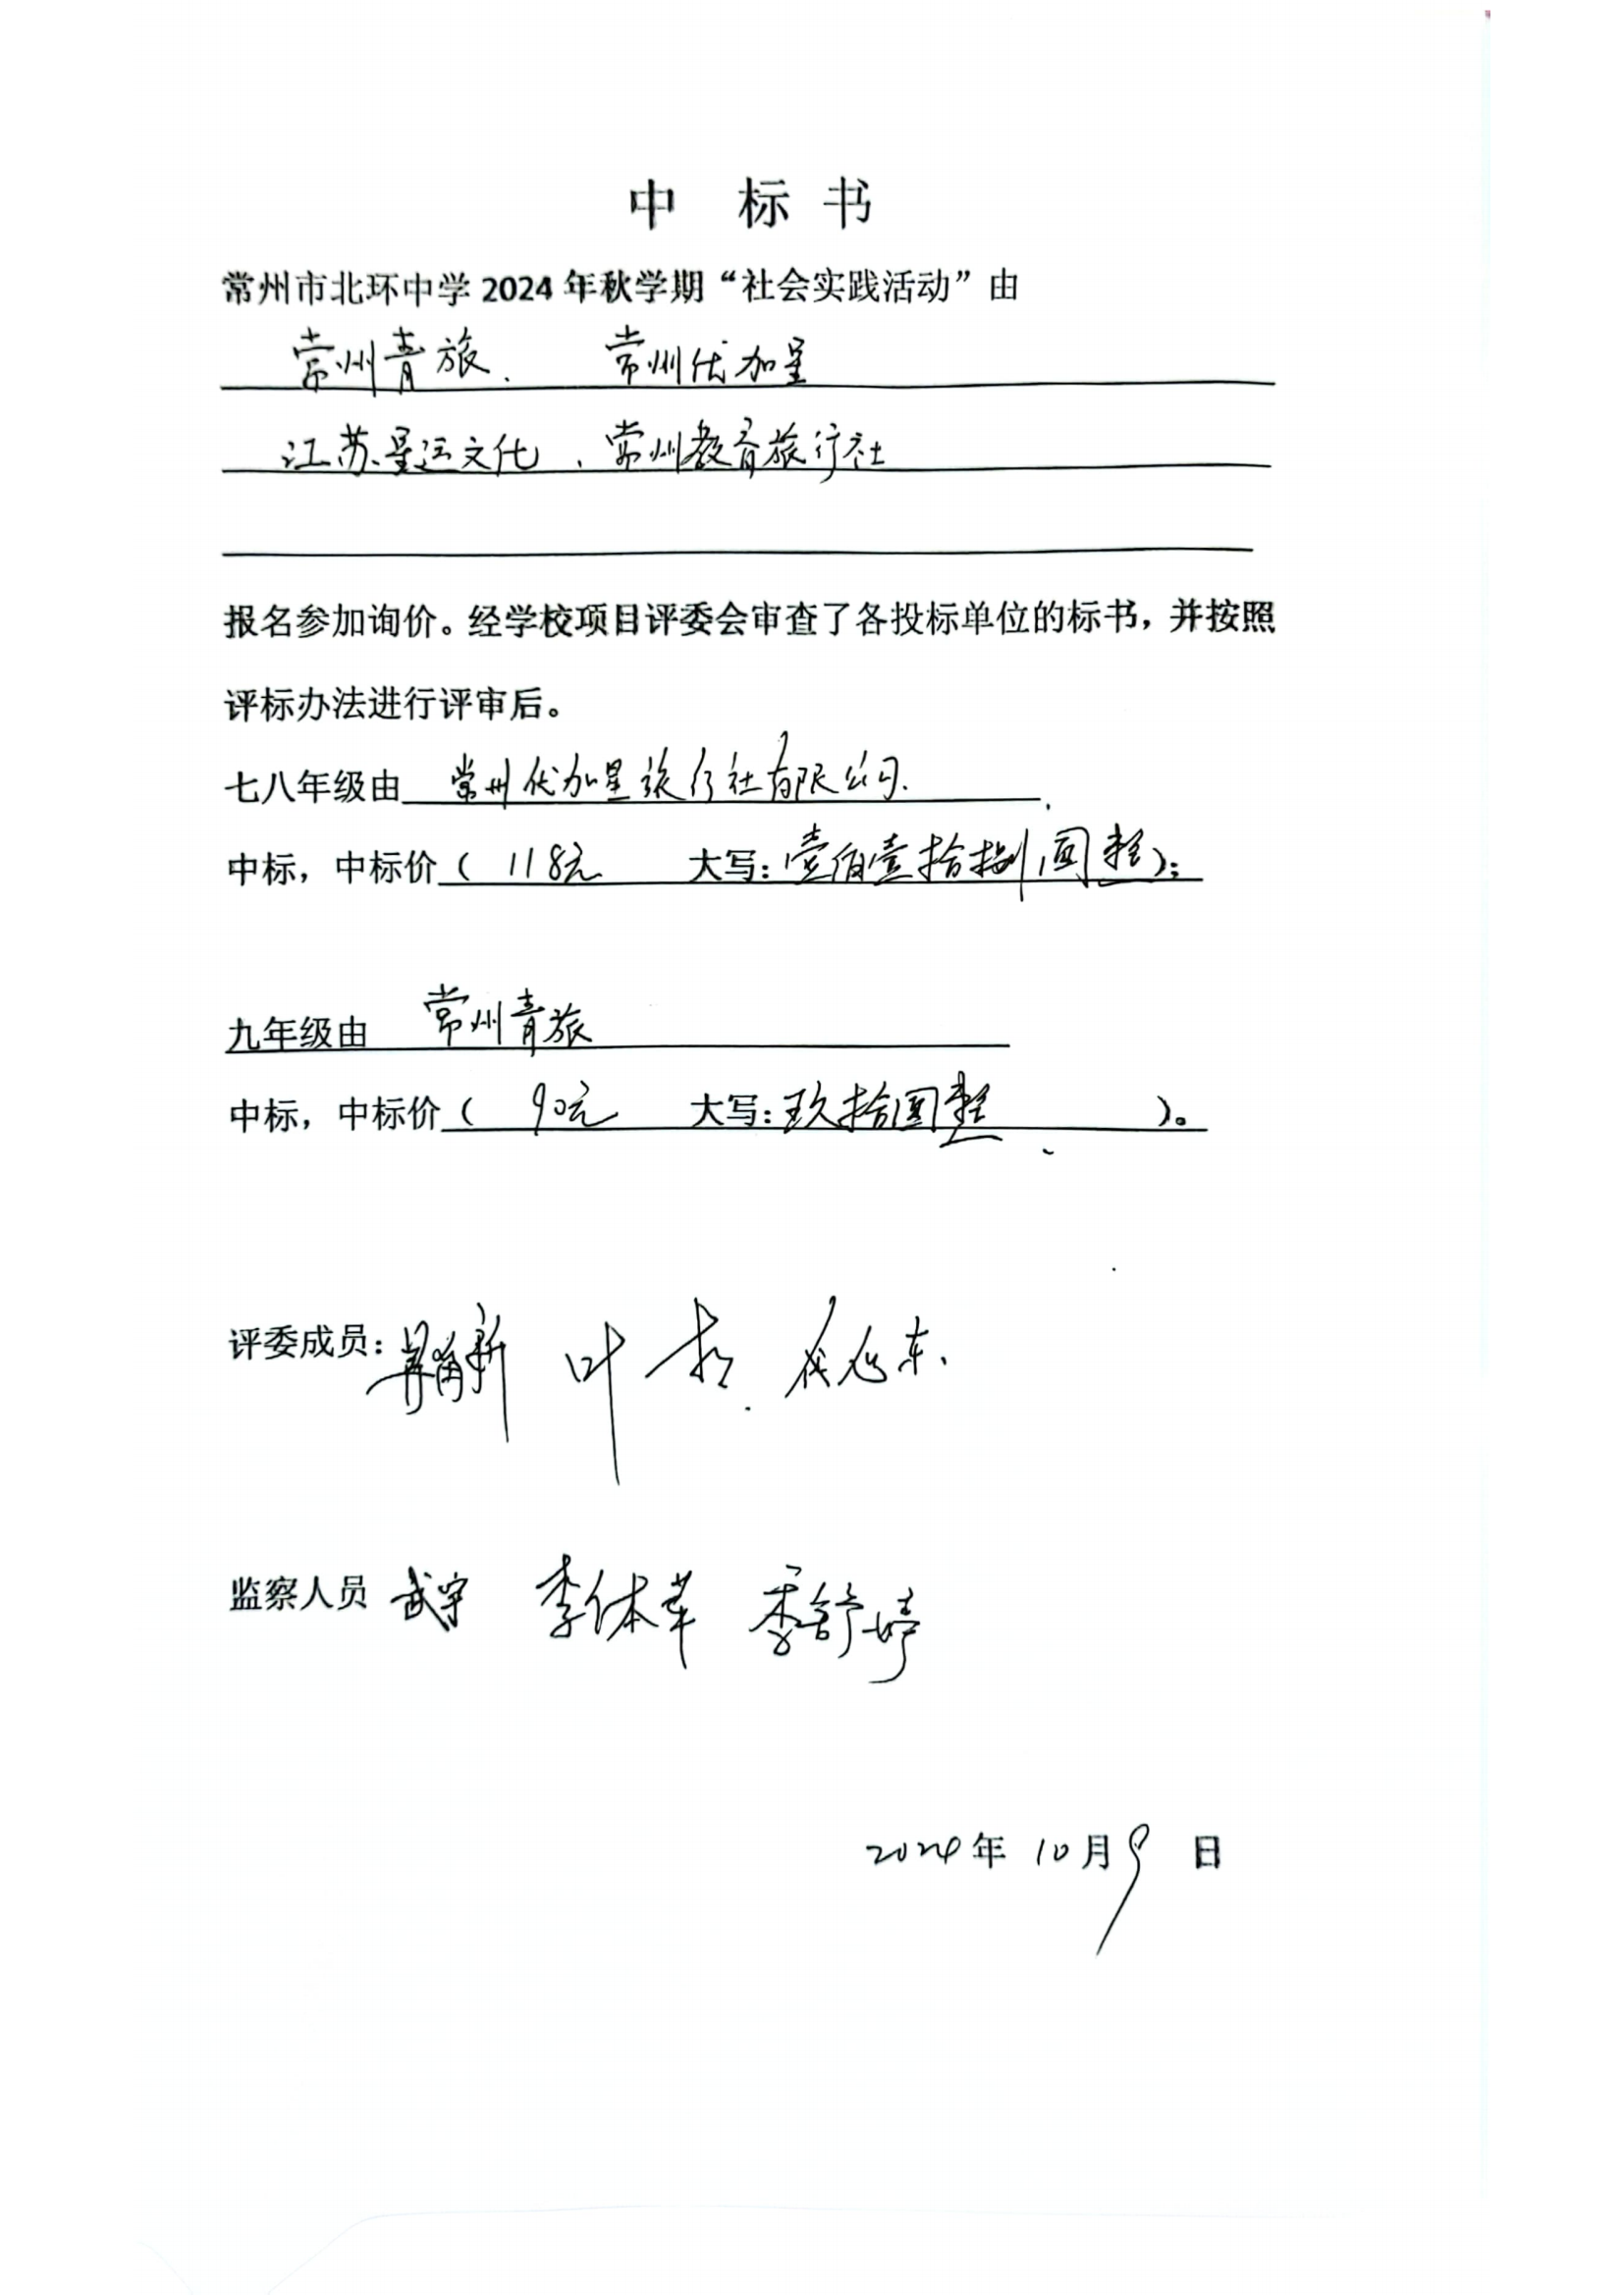 中 标 书
常州市北环中学 2024 年秋学期“社会实践活动”由
常州青旅、 常州优加星
江苏星运文化、常州教育旅行社
报名参加询价。经学校项目评委会审查了各投标单位的标书，并按照
评标办法进行评审后。
七八年级由 常州优加星旅行社有限公司.
中标，中标价（ 118元 大写：壹佰壹拾捌圆整）；
九年级由 常州青旅
中标，中标价（ 90元 大写：玖拾圆整 ）。
评委成员： 叶
监察人员 武宇 李体革 季舒婷
2024 年 10 月 9 日